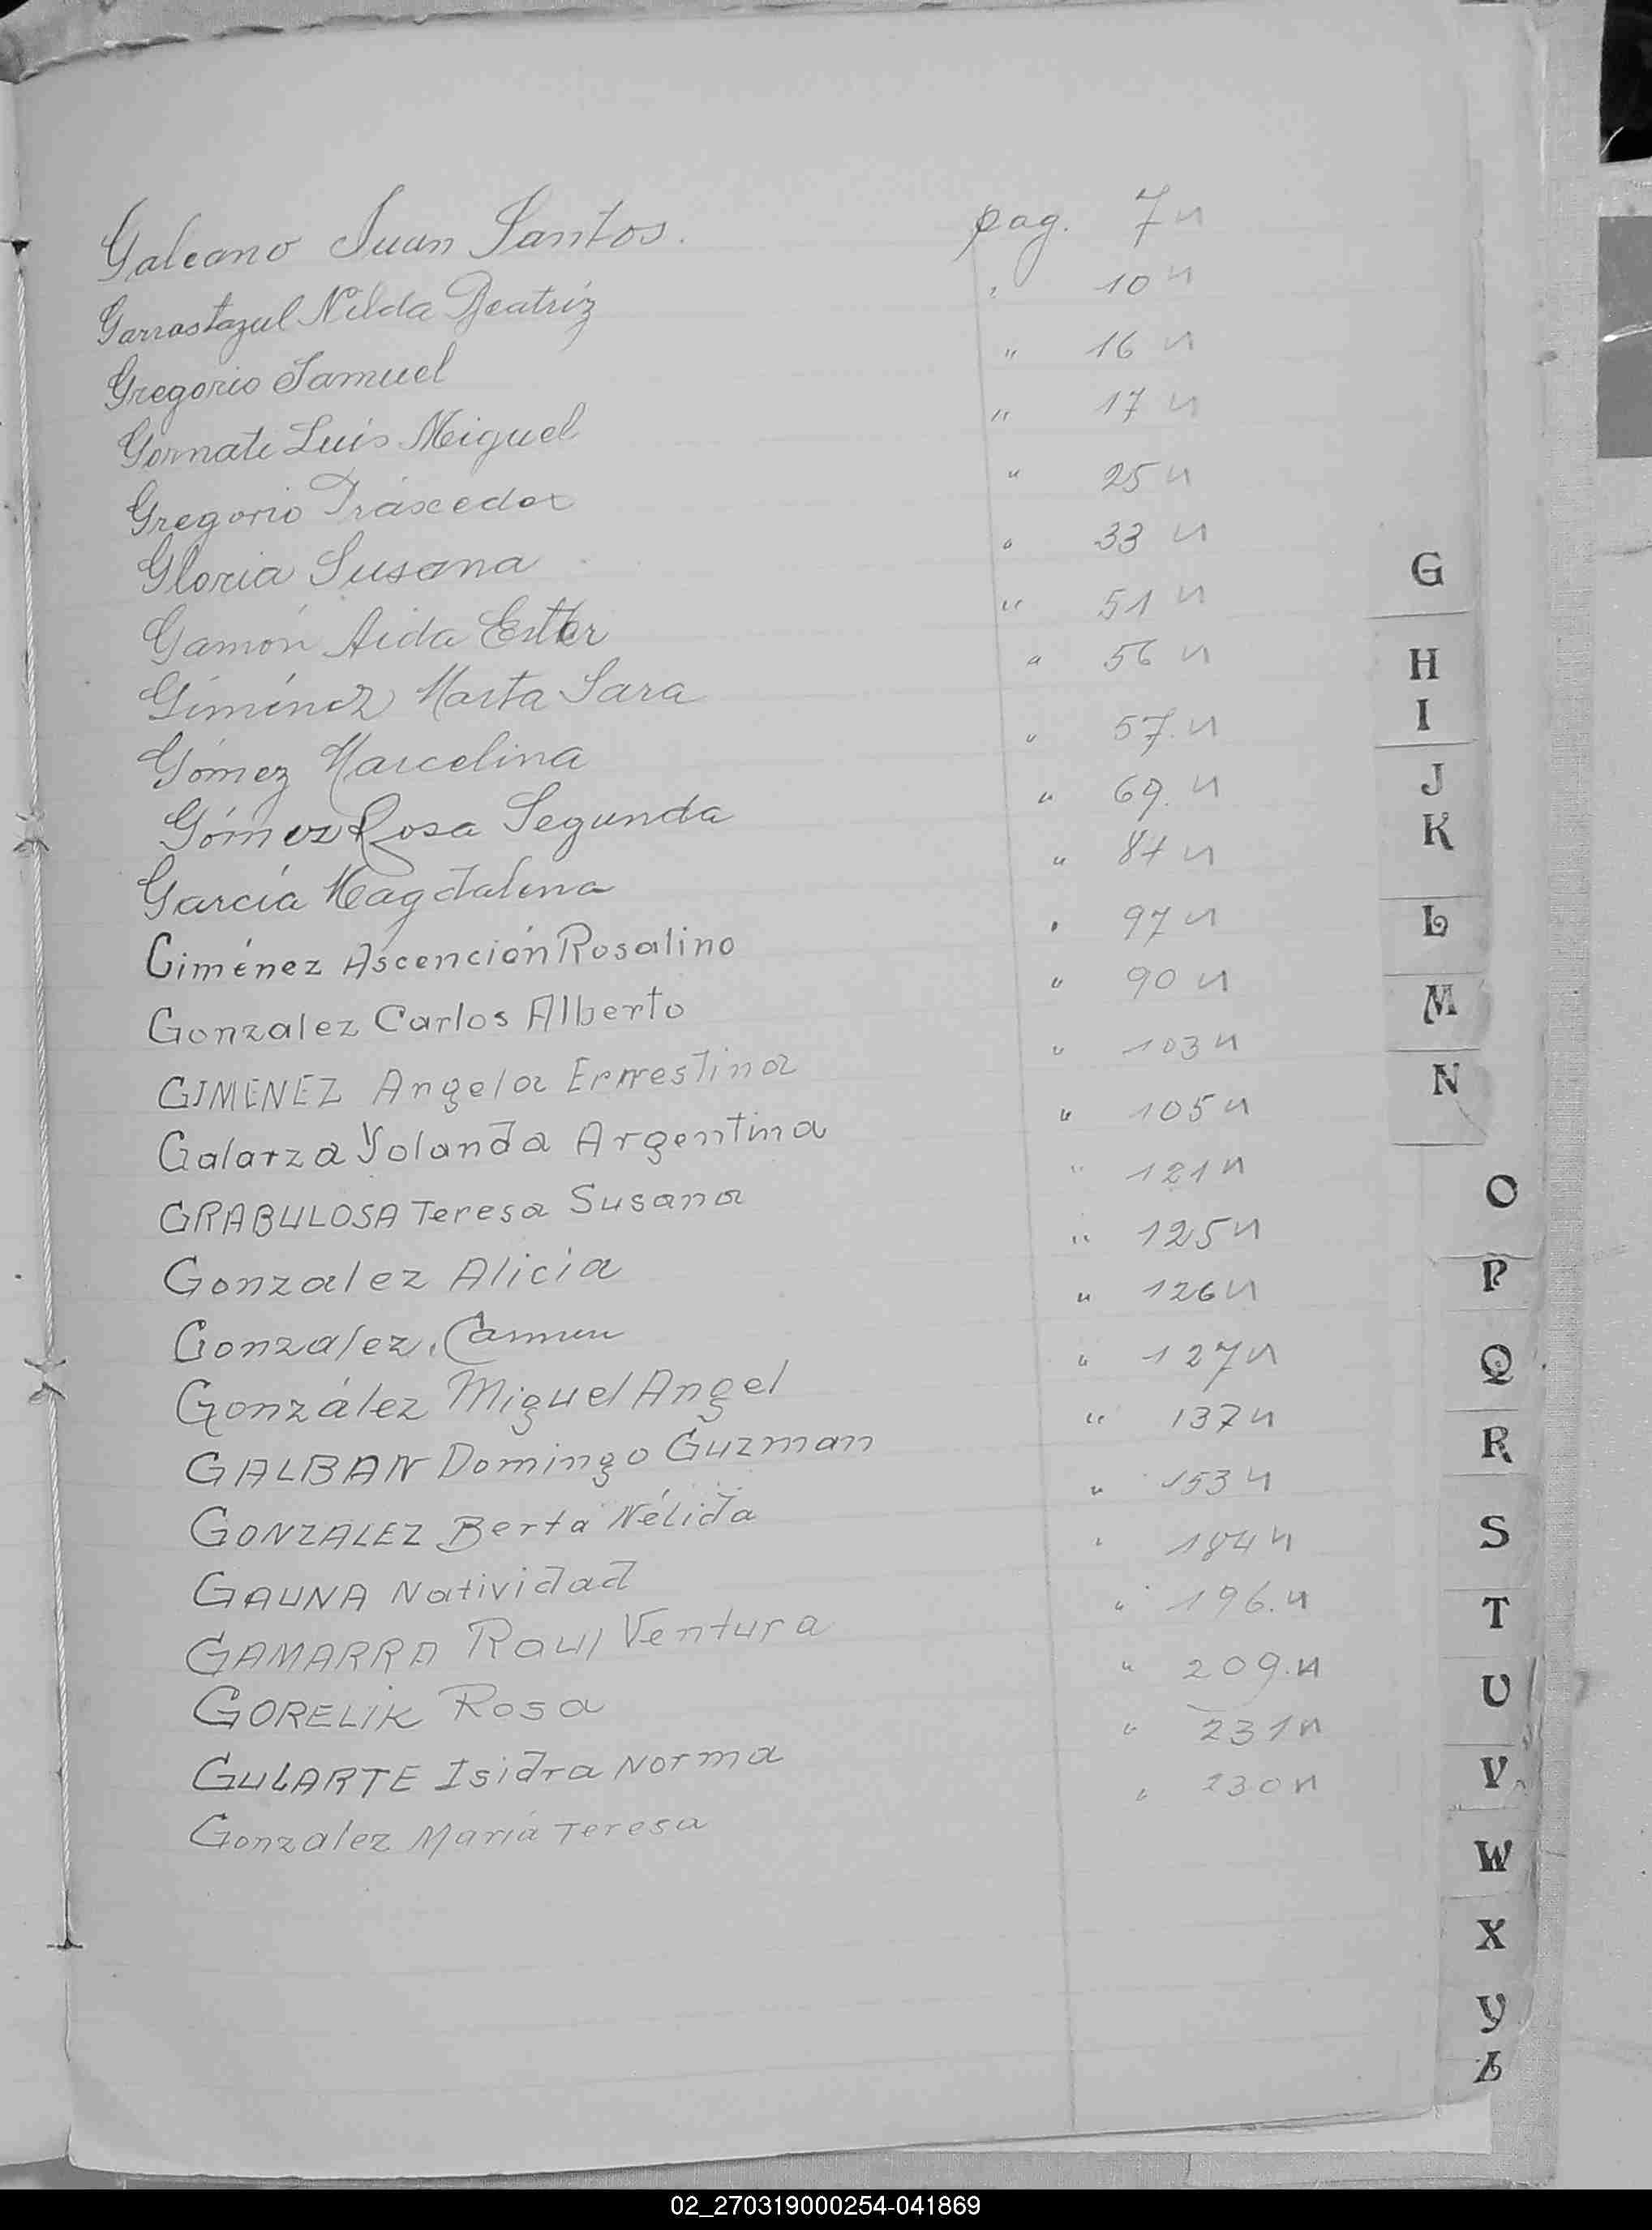 Galeano Juan Santos. pag. 7 n
Garrastazul Nilda Beatriz " 10 n
Gregorio Samuel " 16 n
Gornati Luis Miguel " 17 n
Gregorio Práxedes " 25 n
Gloria Susana " 33 n
Gamón Aida Ester " 51 n
Giménez Marta Sara " 56 n
Gómez Marcelina " 57. n
Gómez Rosa Segunda " 69. n
García Magdalena " 87 n
Giménez Ascención Rosalino " 97 n
Gonzalez Carlos Alberto " 90 n
GIMENEZ Angela Ernestina " 103 n
Galarza Yolanda Argentina " 105 n
GRABULOSA Teresa Susana " 121 n
Gonzalez Alicia " 125 n
Gonzalez, Carmen " 126 n
González Miguel Angel " 127 n
GALBAN Domingo Guzman " 137 n
GONZALEZ Berta Nélida " 153 n
GAUNA Natividad " 184 n
GAMARRA Raul Ventura " 196. n
GORELIK Rosa " 209. n
GULARTE Isidra Norma " 231 n
Gonzalez María Teresa " 230 n
G
H
I
J
K
L
M
N
O
P
Q
R
S
T
U
V
W
X
Y
Z
02_270319000254-041869